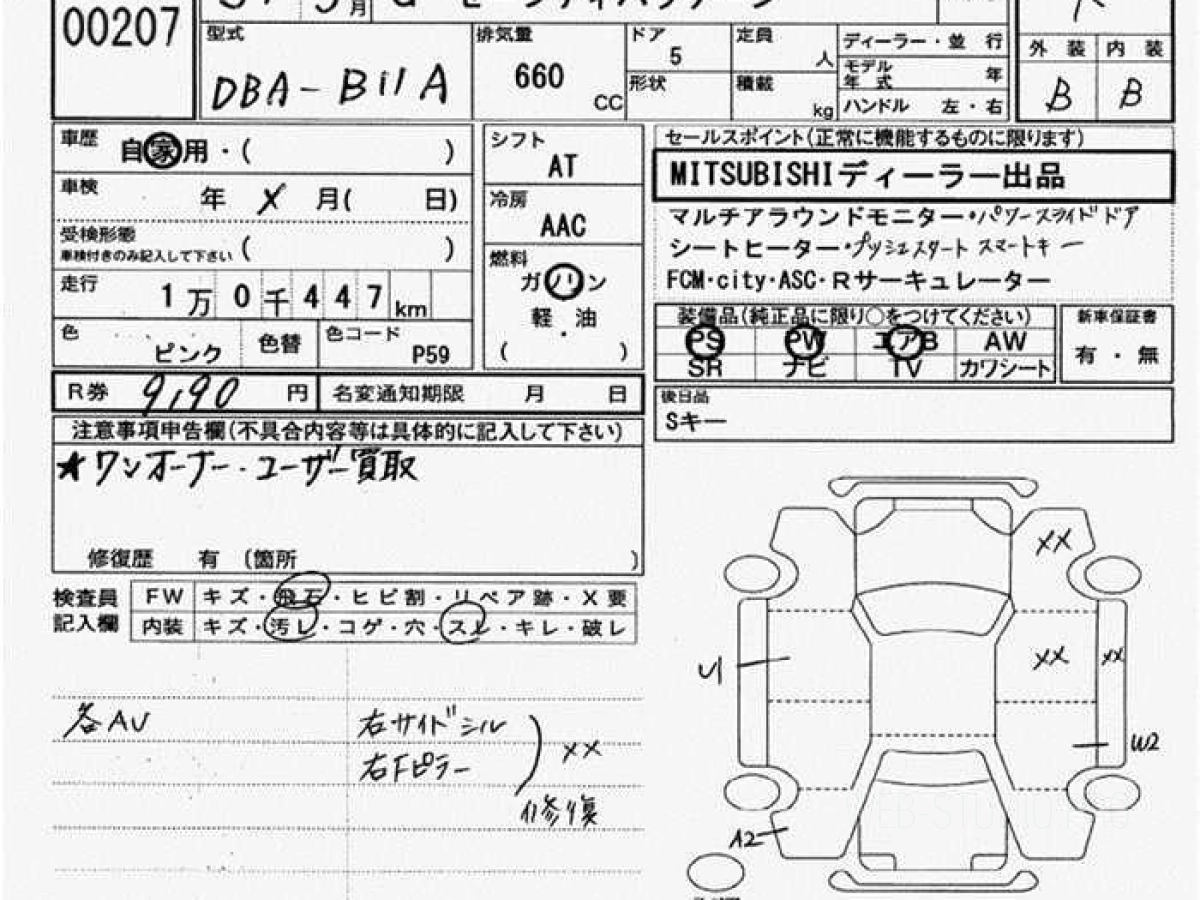 00207
月
型式
DBA-B11A
排気量
660
CC
ドア
5
形状
定員
人
積載
kg
ディーラー・並 行
モデル
年 式 年
ハンドル 左・右
外 装 内 装
B B
車歴
自家用・( )
車検
年 X 月( 日)
受検形態
車検付きのみ記入して下さい ( )
走行
1万0千447km
色
ピンク
色替
色コード
P59
シフト
AT
冷房
AAC
燃料
ガソリン
軽・油
( )
セールスポイント(正常に機能するものに限ります)
MITSUBISHIディーラー出品
マルチアラウンドモニター・パワースライドドア
シートヒーター・プッシュスタート スマートキー
FCM・city・ASC・Rサーキュレーター
装備品(純正品に限り○をつけてください)
PS PW エアB AW
SR ナビ TV カワシート
新車保証書
有・無
R券 9,190 円 名変通知期限 月 日
後日品
Sキー
注意事項申告欄(不具合内容等は具体的に記入して下さい)
★ワンオーナー・ユーザー買取
修復歴 有 (箇所 )
検査員
記入欄
FW キズ・飛石・ヒビ割・リペア跡・X要
内装 キズ・汚レ・コゲ・穴・スレ・キレ・破レ
各AU
右サイドシル
右Fピラー
XX
修復
XX
XX
XX
U1
W2
A2